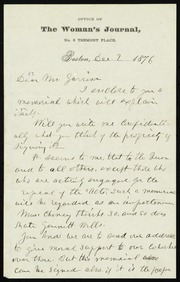 OFFICE OF
The Woman's Journal,
No. 3 TREMONT PLACE.
Boston, Dec. 7 1876
Dear Mr Garrison
I enclose to you a
memorial which will explain
itself.
Will you write me confidenti
ally what you think of the propriety of
signing it.
It seems to me that to the Queen
and to all others, except those who
who are acting engaged for the
repeal of the "Acts", such a memorial
will be regarded as an impertinence
Miss Cheney thinks so, and so does
Kate Gannett Wells.
You and we to send our address
to give moral support to our co-workers
over there. But this memorial
can be signed also if it is the proper